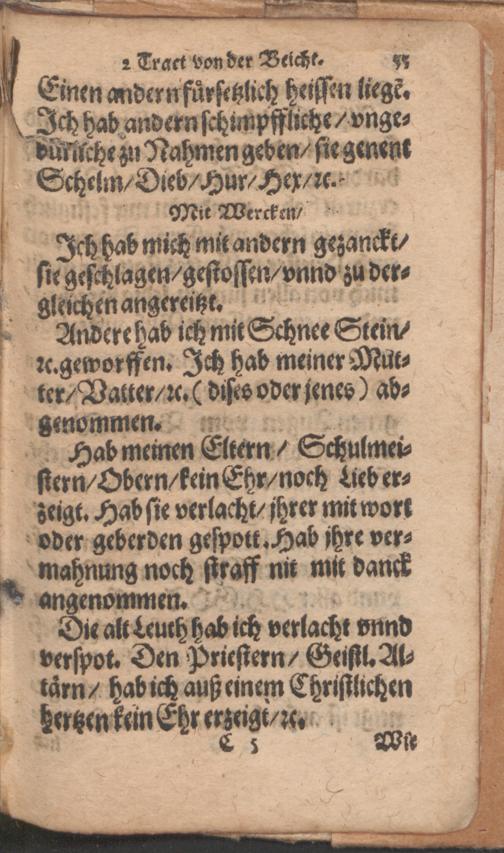 2 Tract von der Beicht. 55
Einen andern fürsetzlich heissen liegē.
Ich hab andern schimpffliche / vnge-
bürliche zu Nahmen geben / sie genent
Schelm / Dieb / Hur / Hex / ꝛc.
Mit Wercken /
Ich hab mich mit andern gezanckt /
sie geschlagen / gestossen / vnnd zu der-
gleichen angereitzt.
Andere hab ich mit Schnee Stein /
ꝛc. geworffen. Ich hab meiner Mut-
ter / Vatter / ꝛc. ( dises oder jenes ) ab-
genommen.
Hab meinen Eltern / Schulmei-
stern / Obern / kein Ehr / noch Lieb er-
zeigt. Hab sie verlacht / jhrer mit wort
oder geberden gespott. Hab jhre ver-
mahnung noch straff nit mit danck
angenommen.
Die alt Leuth hab ich verlacht vnnd
verspot. Den Priestern / Geistl. Al-
tärn / hab ich auß einem Christlichen
hertzen kein Ehr erzeigt / ꝛc.
C 5 Wie